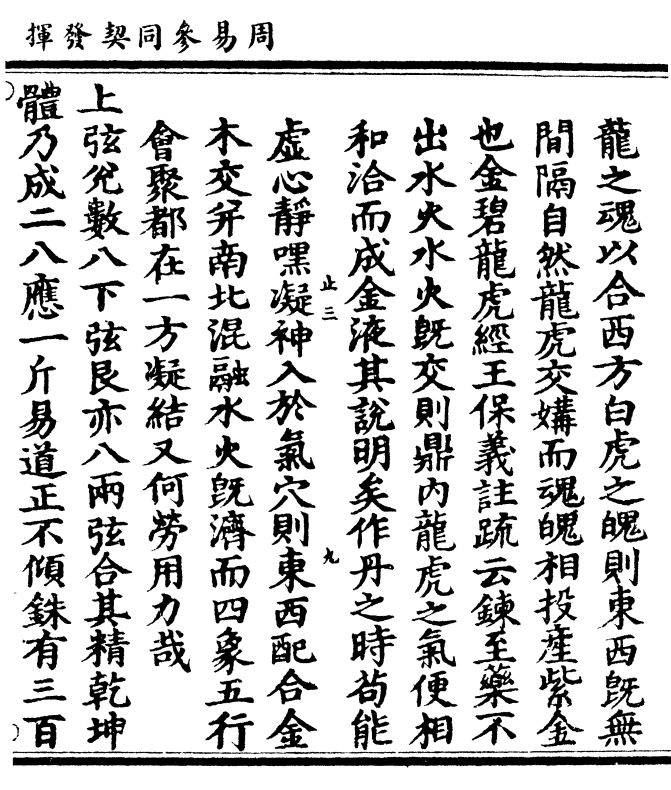 周易參同契發揮
龍之魂以合西方白虎之魄則東西旣無
間隔自然龍虎交媾而魂魄相投產紫金
也金碧龍虎經王保義註䟽云鍊至藥不
出水火水火旣交則鼎內龍虎之氣便相
和洽而成金液其說明矣作丹之時茍能
止三
九
虛心靜嘿凝神入於氣穴則東西配合金
木交并南北混融水火旣濟而四象五行
會聚都在一方凝結又何勞用力哉
上弦兊數八下弦艮亦八兩弦合其精乾坤
體乃成二八應一斤易道正不傾銖有三百